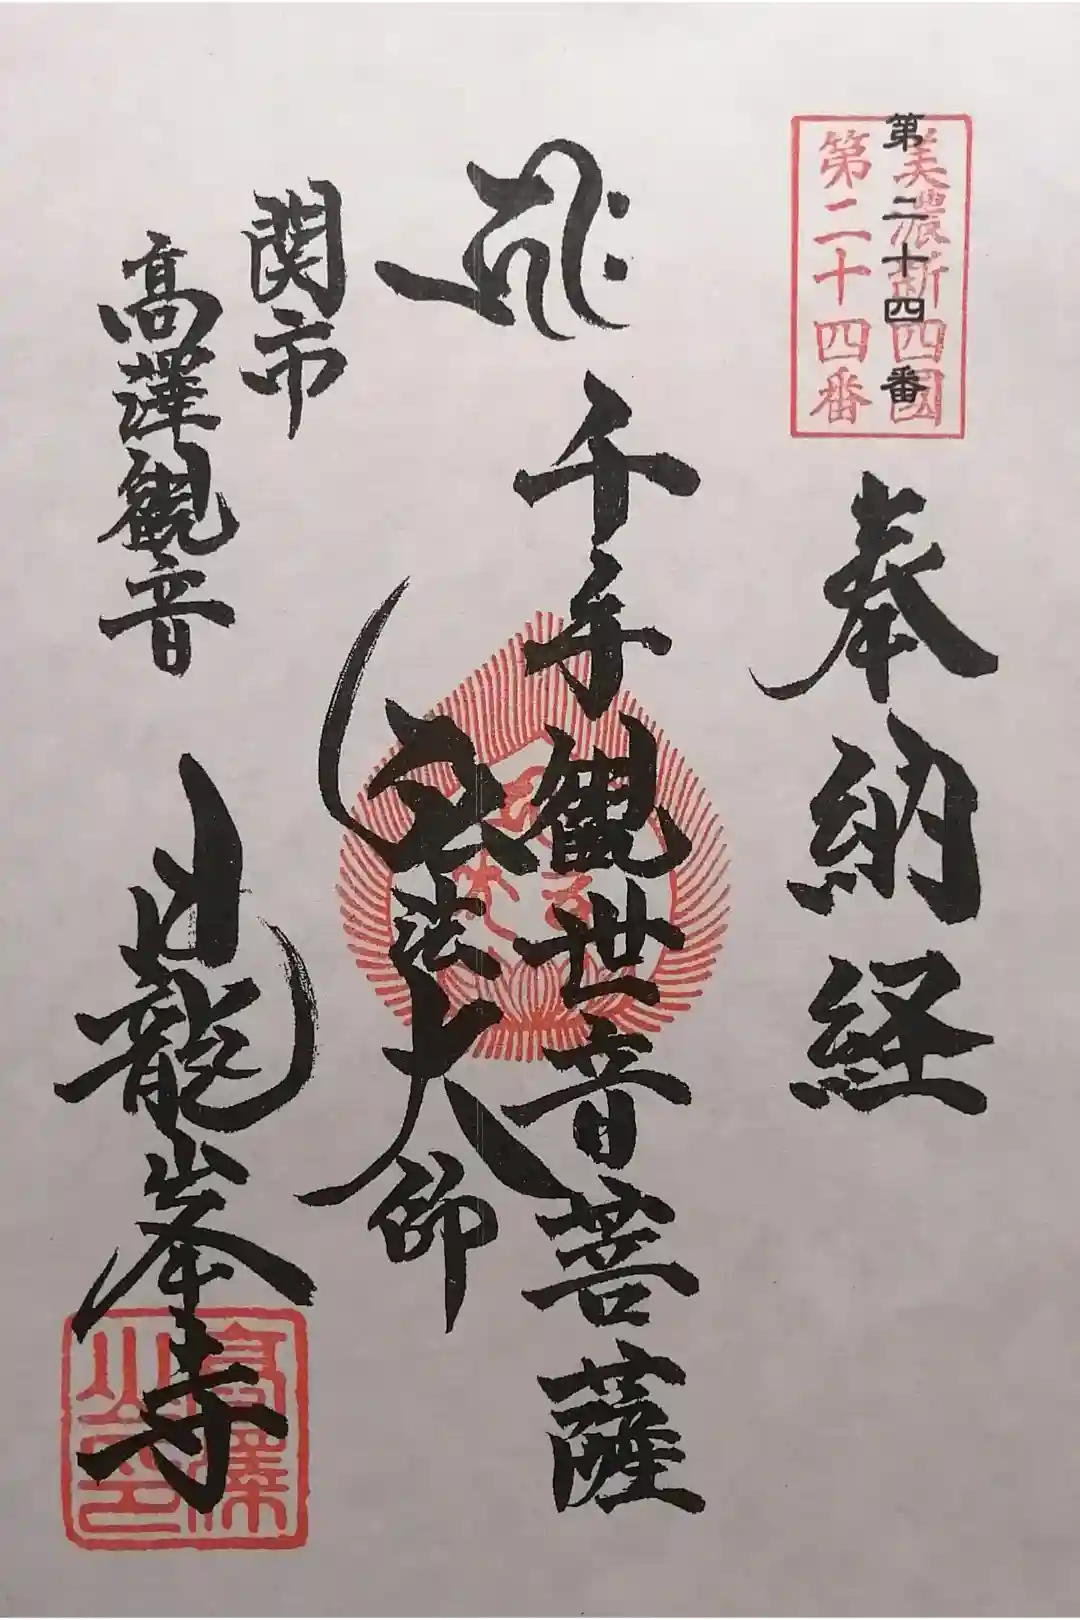 美濃新四國
第二十四番
第二十四番
奉納経
千手観世音菩薩
弘法大師
関市
高澤観音
日龍峯寺
高澤
山印